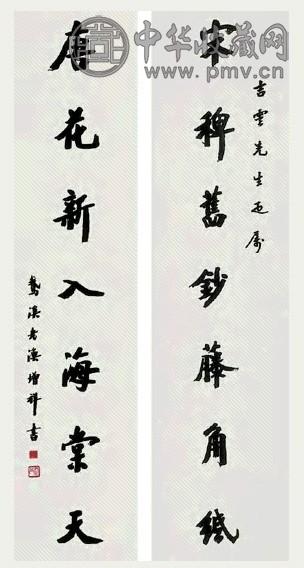 中华收藏网
www.pmv.cn
吉雲先生疋属
宋稗舊鈔藤角紙
唐花新入海棠天
溪老漁增祥書